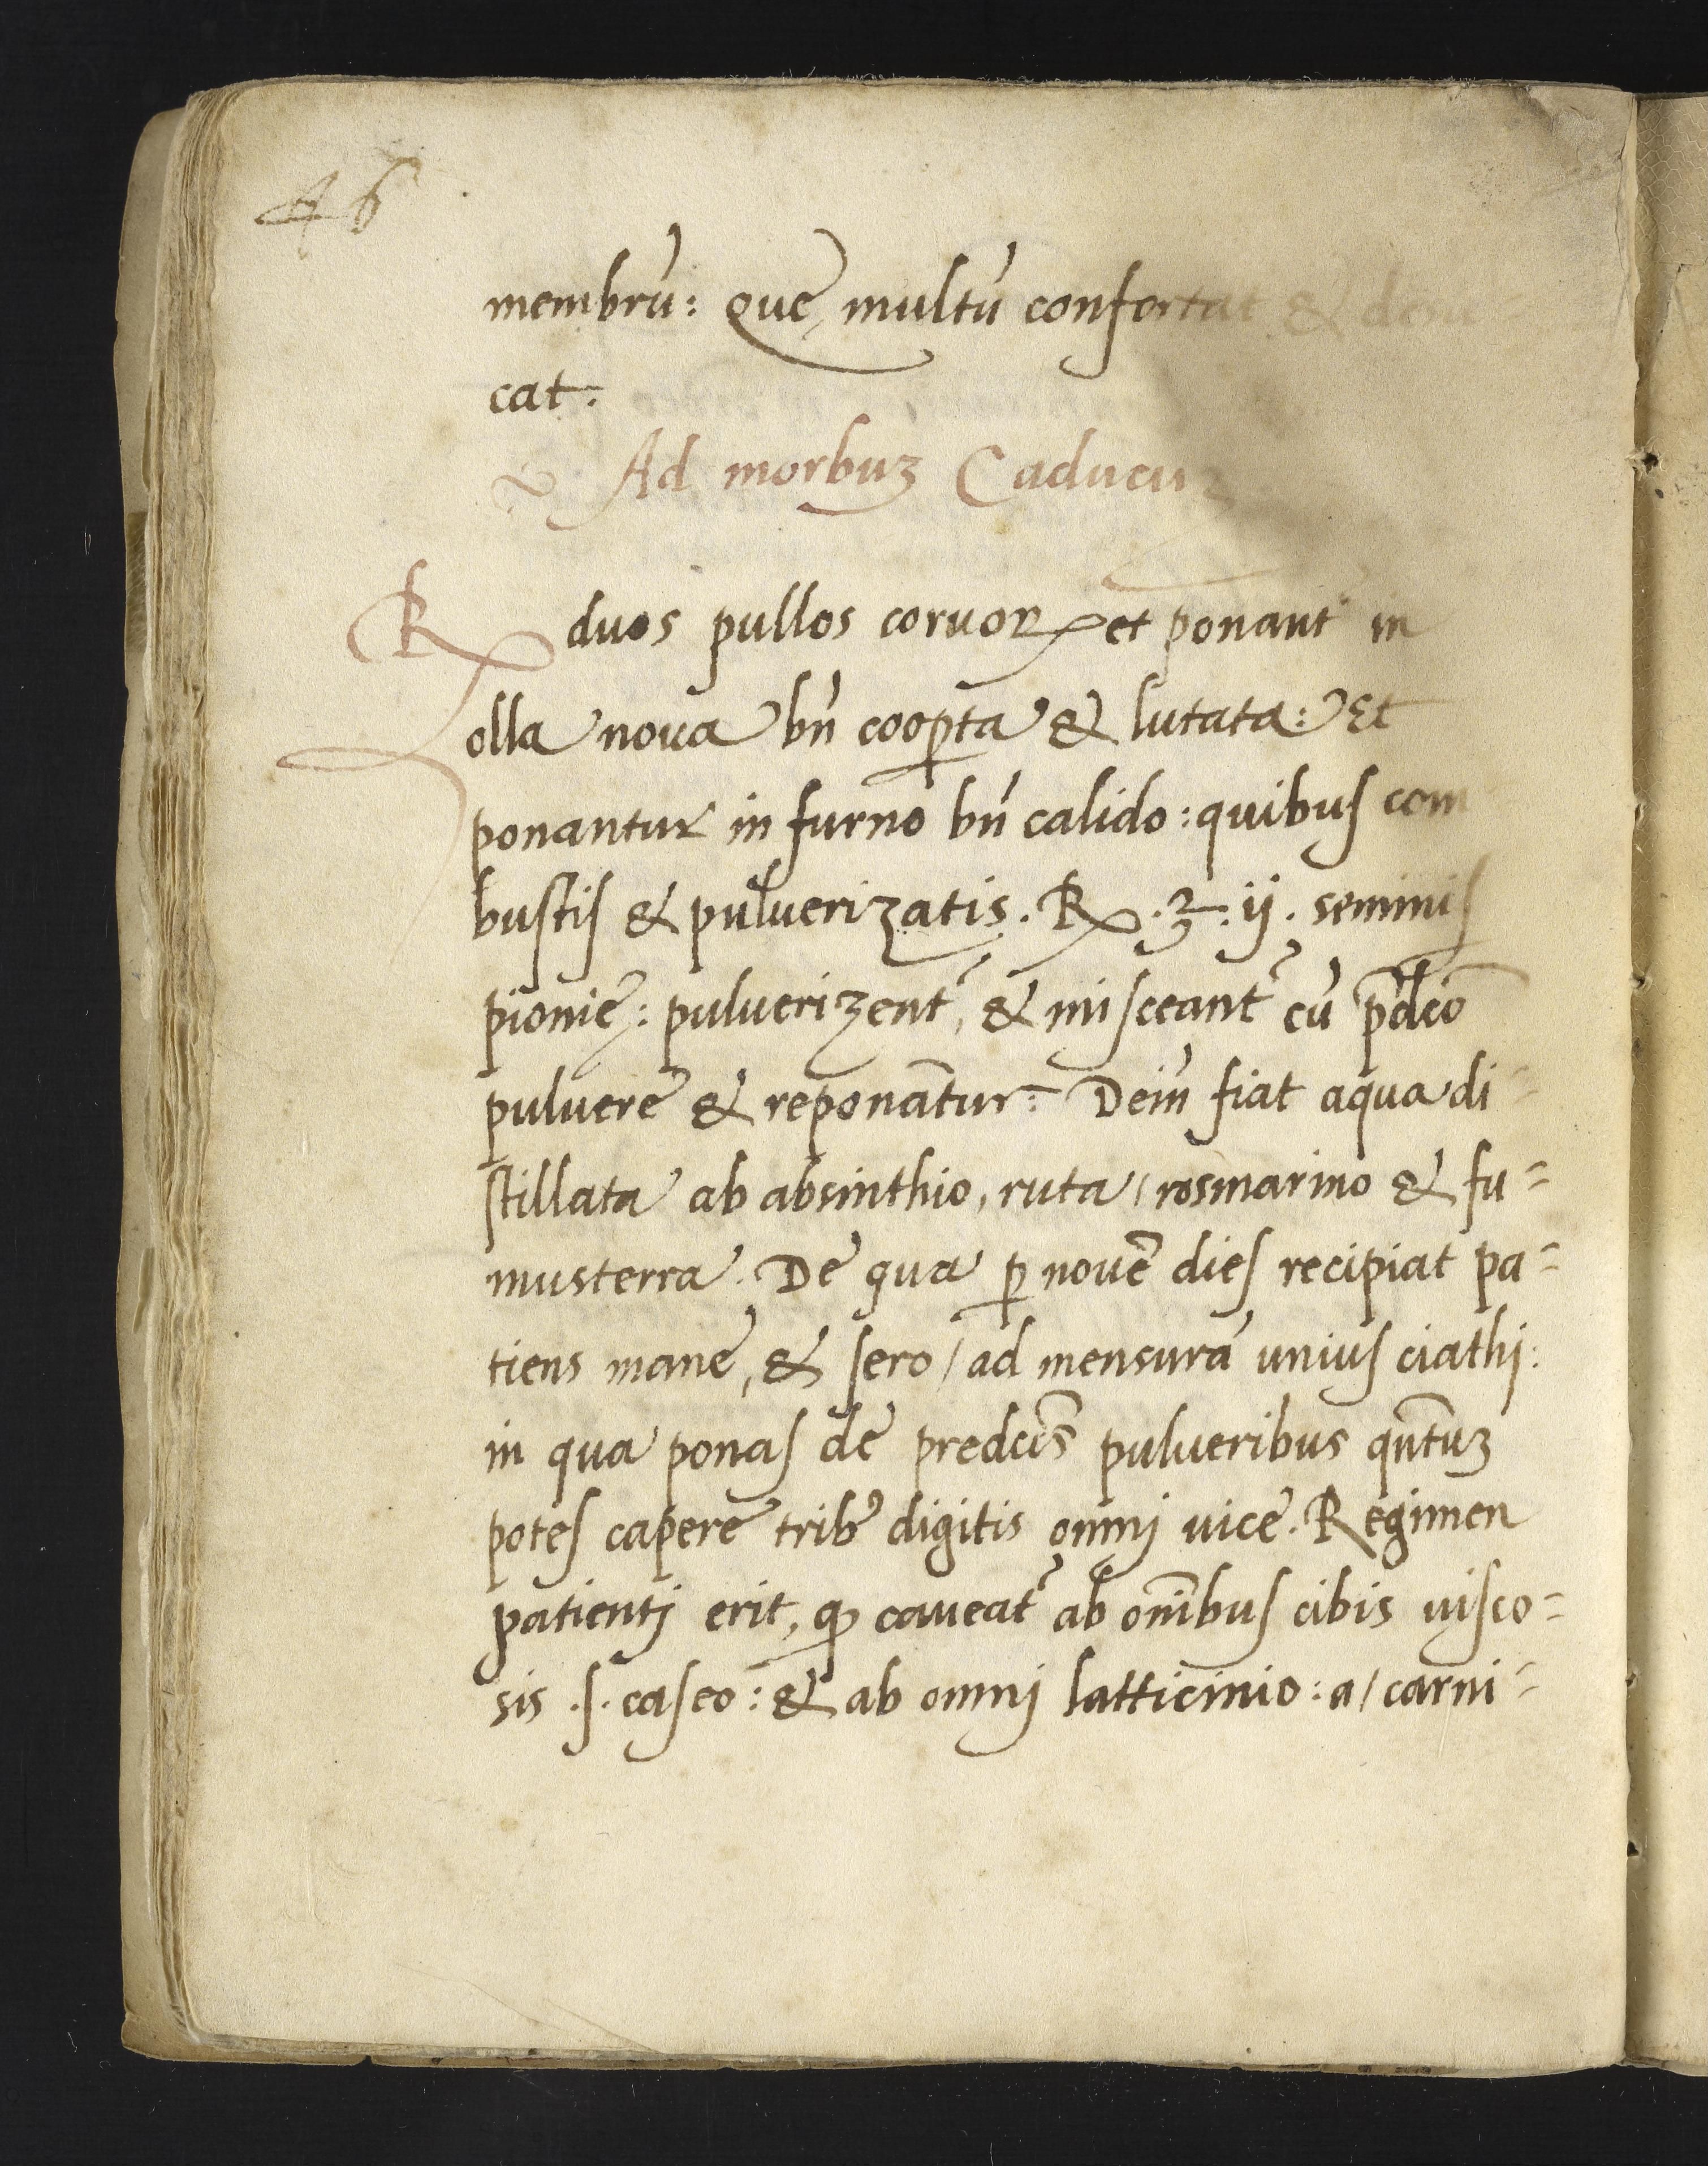 46
membrū: Que multū confortat &
cat.
Ad morbuꝫ Caducuꝫ
℞ duos pullos coruoꝝ et ponant̄ in
olla noua bn̄ cooꝑta & lutata: Et
ponantur in furno bn̄ calido: quibuſ com
buſtiſ & puluerizatis. ℞. ℥. ij. seminiſ
pionie: puluerizent̄, & miſceant̄ cū p̄dc̄o
puluere & reponāntur: Dein̄ fiat aqua di-
ſtillata ab absinthio, ruta / rosmarino & fu=
musterra. De qua ꝑ nouē dieſ recipiat pa=
tiens mane, & ſero / ad mensurā uniuſ ciathj:
in qua ponaſ de predc̄is pulueribus qn̄tuꝫ
poteſ capere trib⁹ digitis omnj uice. Regimen
patientj erit, ꝙ caueat̄ ab om̄ibuſ cibis uiſco=
sis .ſ. caſeo: & ab omnj latticinio: a / carni=